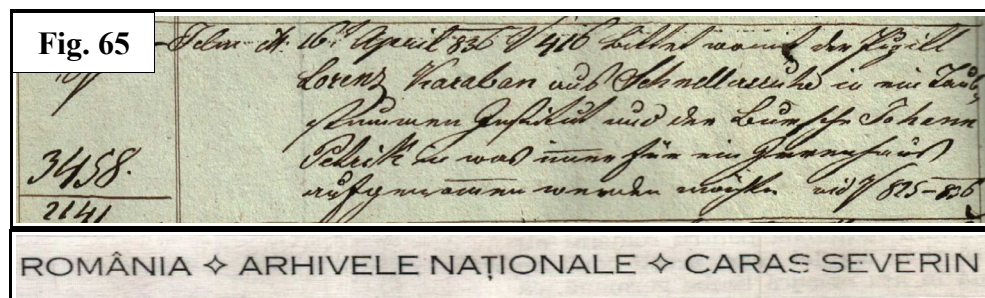 Fig. 65
16. April 836 416 bittet womit der
Lorenz Karaban aus Schnellersruhe in ein Taub-
stummen Institut und der Bursche Johann
3458. Petrik in was immer für ein
2141 aufgenommen werden möchte 825–836
ROMÂNIA ✧ ARHIVELE NAȚIONALE ✧ CARAS SEVERIN